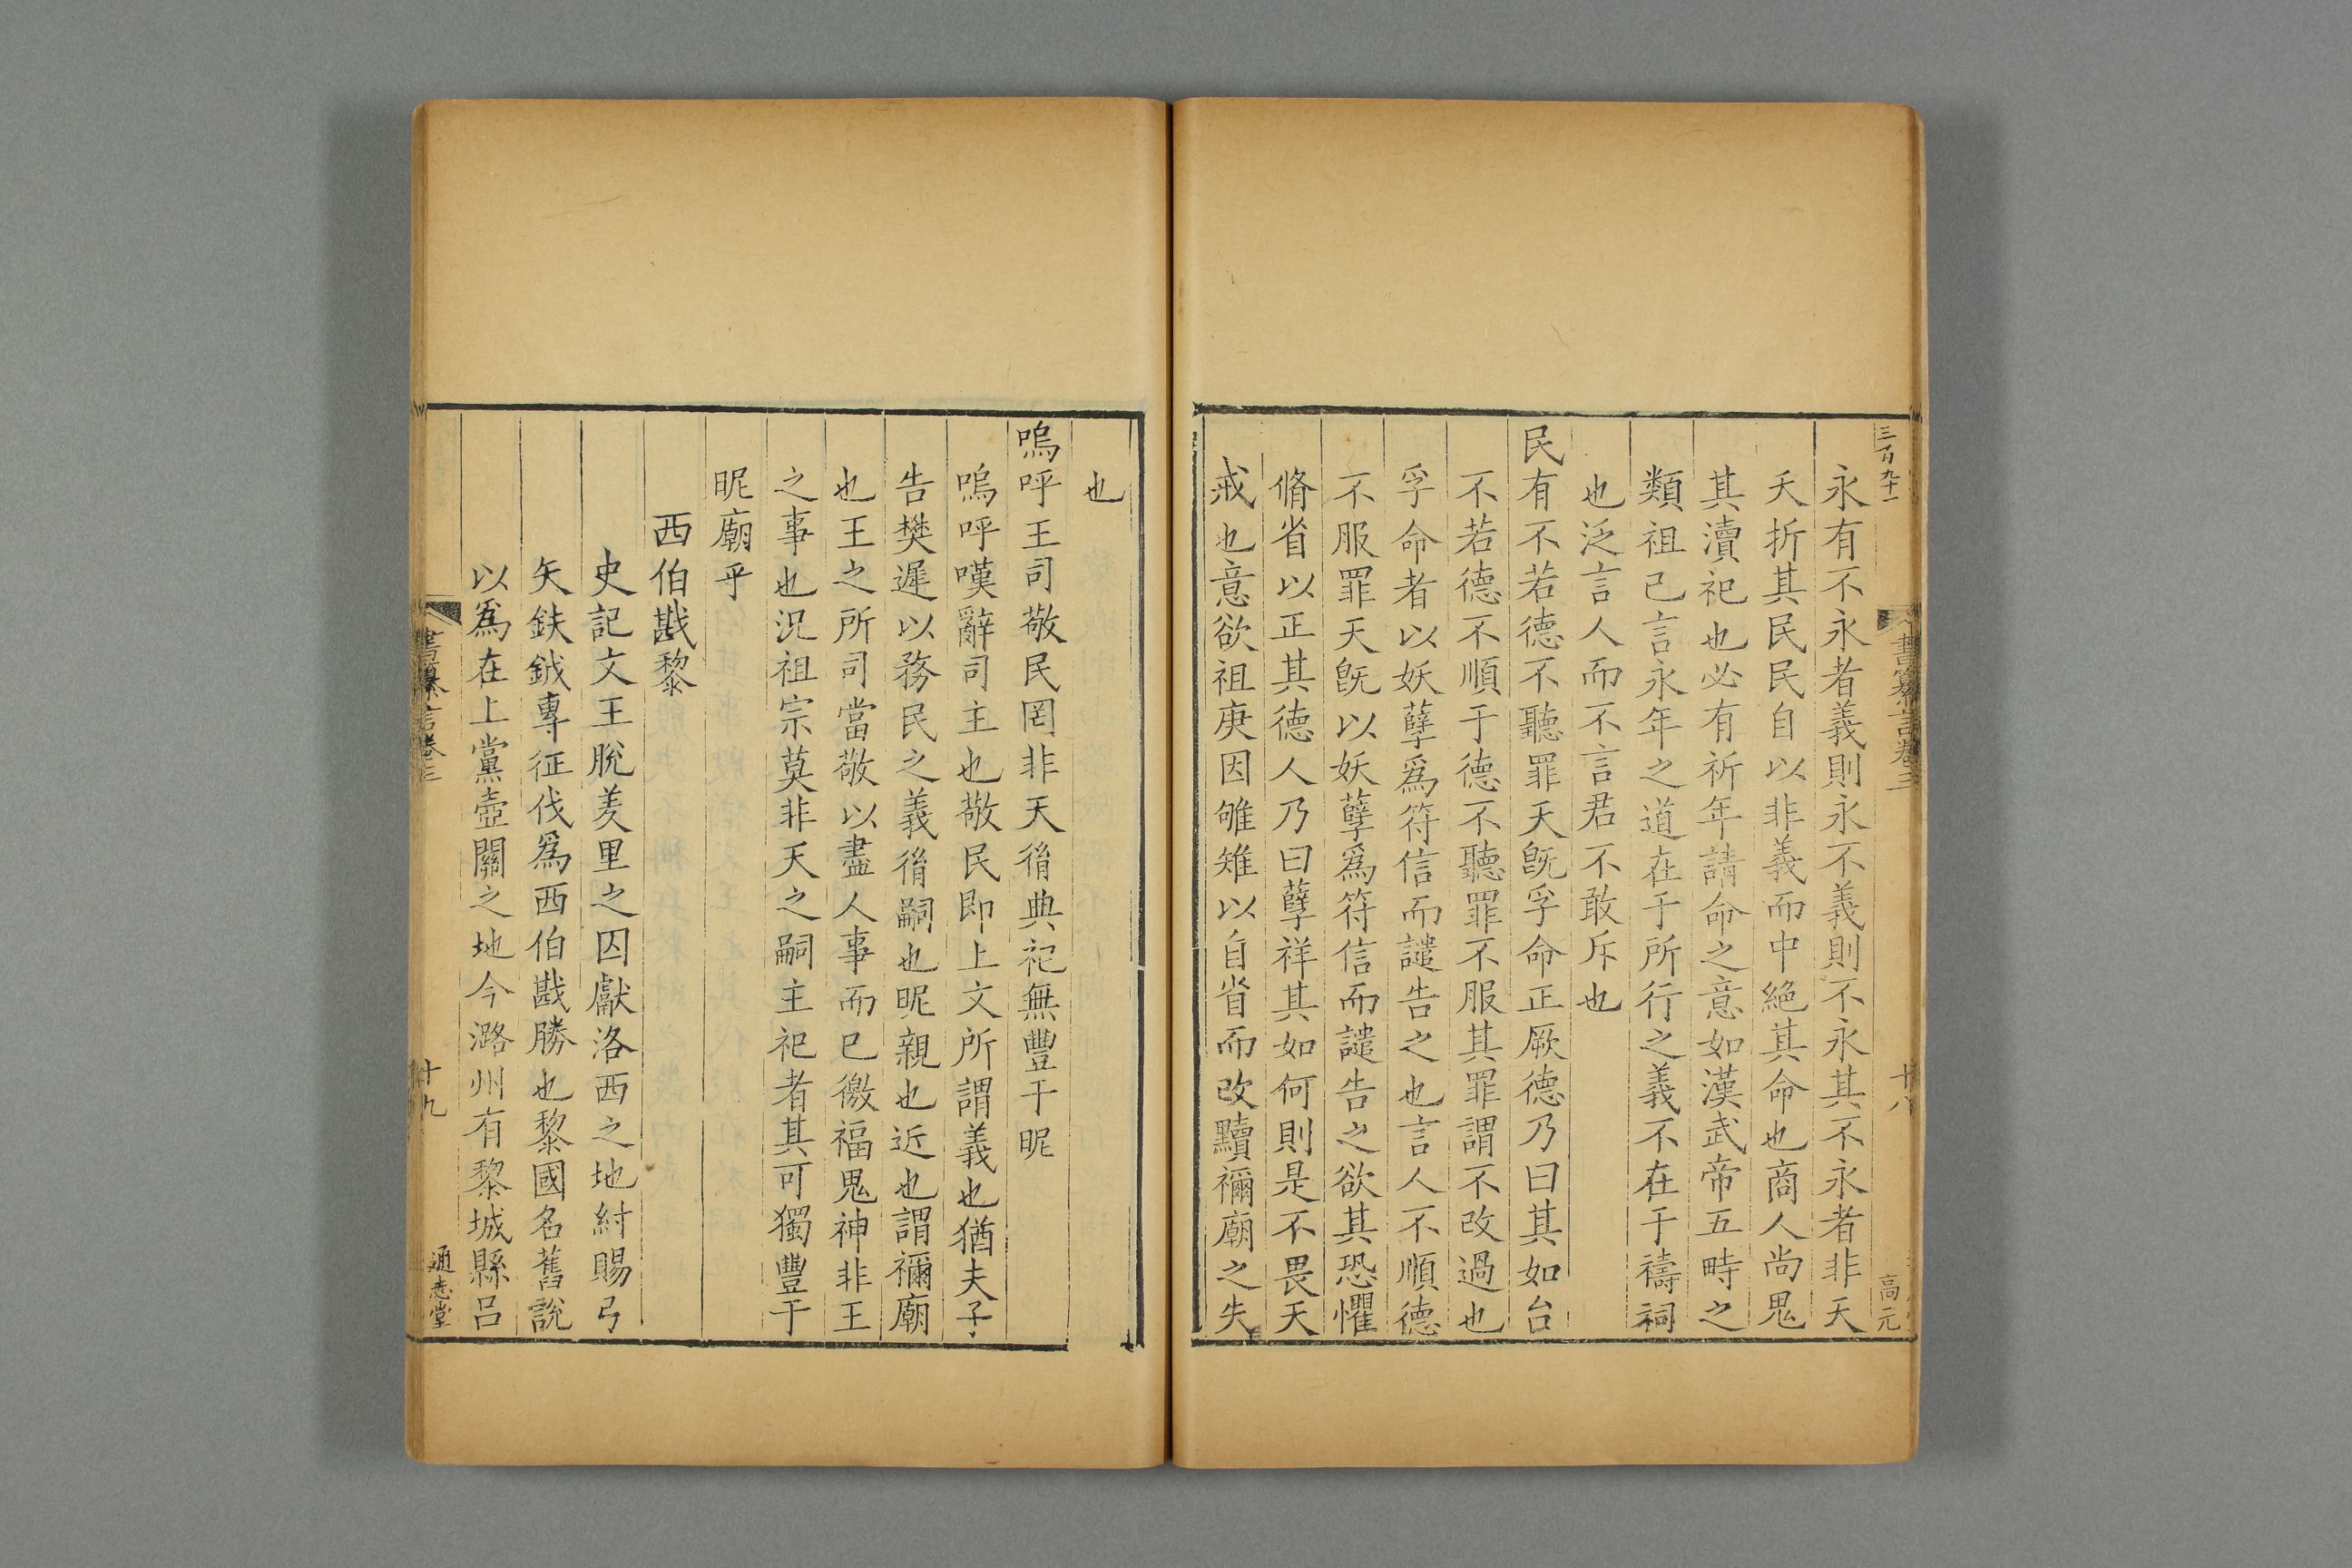 三百九十一
書纂言卷三
十八
高元
永有不永者義則永不義則不永其不永者非天
夭折其民民自以非義而中絕其命也商人尚鬼
其瀆祀也必有祈年請命之意如漢武帝五畤之
類祖己言永年之道在于所行之義不在于禱祠
也泛言人而不言君不敢斥也
民有不若德不聽罪天旣孚命正厥德乃曰其如台
不若德不順于德不聽罪不服其罪謂不改過也
孚命者以妖孽爲符信而譴告之也言人不順德
不服罪天旣以妖孽爲符信而譴告之欲其恐懼
脩省以正其德人乃曰孽祥其如何則是不畏天
戒也意欲祖庚因雊雉以自省而改黷禰廟之失
也
嗚呼王司敬民罔非天㣧典祀無豐于昵
嗚呼嘆辭司主也敬民即上文所謂義也猶夫子
告樊遲以務民之義㣧嗣也昵親也近也謂禰廟
也王之所司當敬以盡人事而已徼福鬼神非王
之事也况祖宗莫非天之嗣主祀者其可獨豐于
昵廟乎
西伯戡黎
史記文王脫羑里之囚獻洛西之地紂賜弓
矢鈇鉞專征伐爲西伯戡勝也黎國名舊說
以爲在上黨壺關之地今潞州有黎城縣呂
書纂言卷三
十九
通志堂